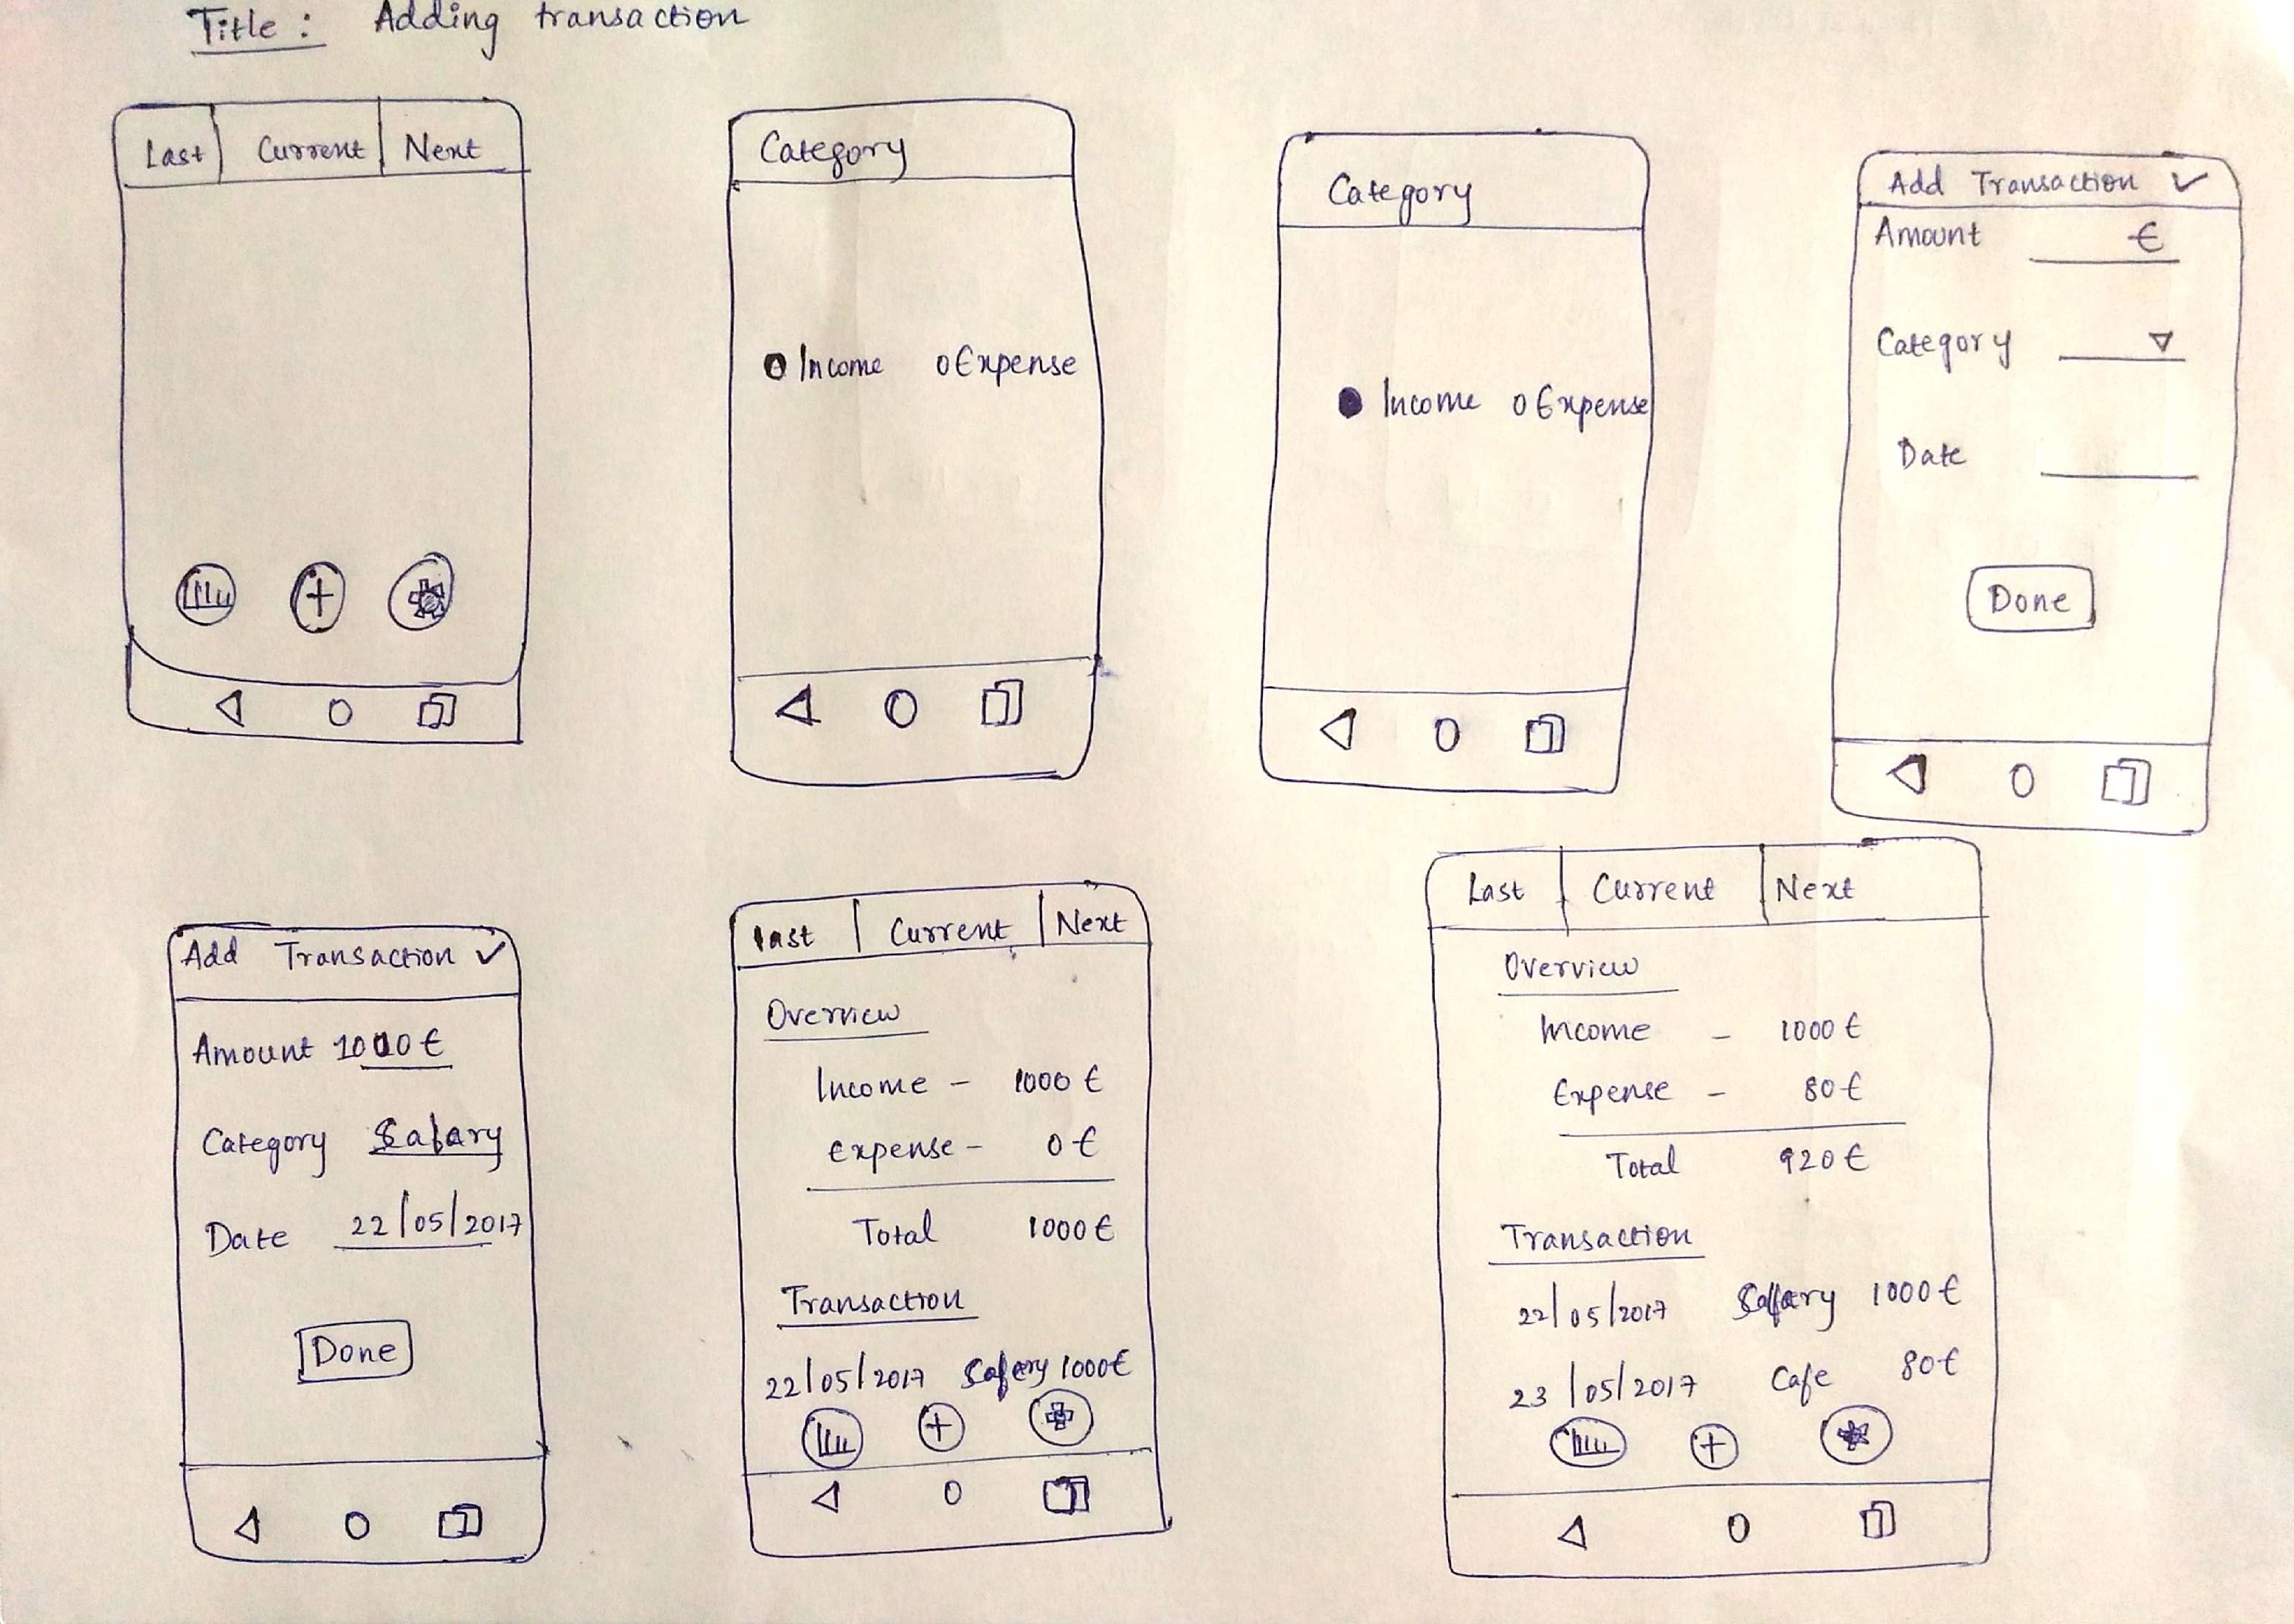 Title : Adding transaction
Last Current Next
Category
Income Expense
Category
Income Expense
Add Transaction ✓
Amount €
Category
Date
Done
Add Transaction ✓
Amount 1000 €
Category Salary
Date 22/05/2017
Done
Last Current Next
Overview
Income - 1000 €
Expense - 0 €
Total 1000 €
Transaction
22/05/2017 Salary 1000€
Last Current Next
Overview
Income - 1000 €
Expense - 80 €
Total 920 €
Transaction
22/05/2017 Salary 1000 €
23/05/2017 Cafe 80 €